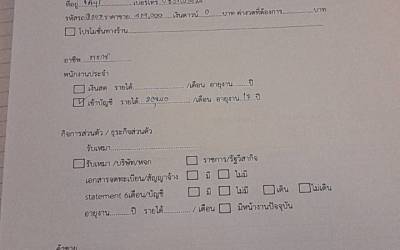 ที่อยู่ เบอร์โทร
รหัสรถ ราคาขาย 419,000 เงินดาวน์ 0 บาท ค่างวดที่ต้องการ............บาท
โปรโมชั่นทางร้าน
อาชีพ
พนักงานประจำ
เงินสด รายได้............/เดือน อายุงาน.....ปี
เข้าบัญชี รายได้ /เดือน อายุงาน ปี
กิจการส่วนตัว / ธุระกิจส่วนตัว
รับเหมา............
รับเหมา /บริษัท/หจก ราชการ/รัฐวิสากิจ
เอกสารจดทะเบียน/สัญญาจ้าง มี ไม่มี
statement 6เดือน/บัญชี มี ไม่มี เดิน ไม่เดิน
อายุงาน........ปี รายได้............/ เดือน มีหน้างานปัจจุบัน